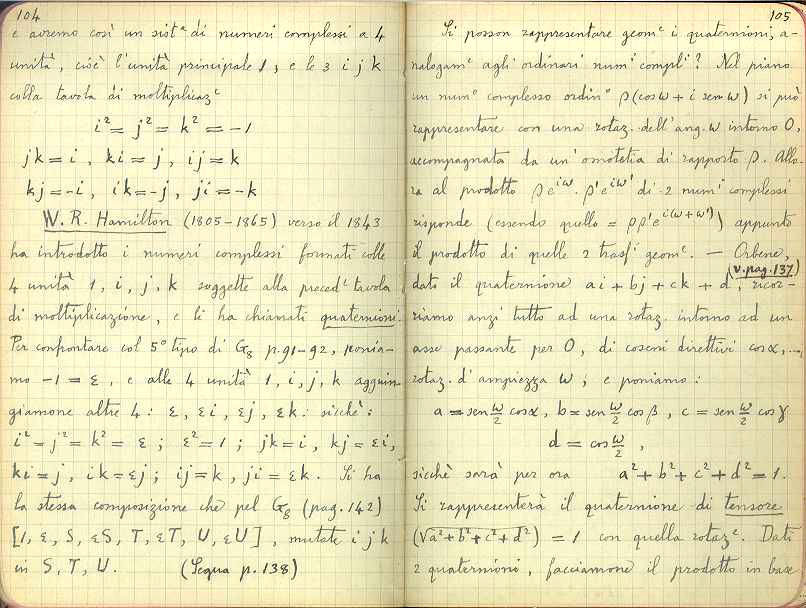 104
e avremo così un sist.ᵃ di numeri complessi a 4
unità, cioè l'unità principale 1, e le 3 i j k
colla tavola di moltiplicaz.ᵉ
i² = j² = k² = -1
jk = i, ki = j, ij = k
kj = -i, ik = -j, ji = -k
W. R. Hamilton (1805-1865) verso il 1843
ha introdotto i numeri complessi formati colle
4 unità 1, i, j, k soggette alla preced.ᵉ tavola
di moltiplicazione, e li ha chiamati quaternioni.
Per confrontare col 5° tipo di G₈ p. 91-92, ponia-
mo -1 = ε, e alle 4 unità 1, i, j, k aggiun-
giamone altre 4: ε, εi, εj, εk: sicchè:
i² = j² = k² = ε; ε² = 1; jk = i, kj = εi,
ki = j, ik = εj; ij = k, ji = εk. Si ha
la stessa composizione che pel G₈ (pag. 142)
[1, ε, S, εS, T, εT, U, εU], mutate i j k
in S, T, U. (Segua p. 138)
105
Si posson rappresentare geom.ᵉ i quaternioni, a-
nalogam.ᵉ agli ordinari num.ⁱ compl.ⁱ? Nel piano
un num.ᵒ complesso ordin.ᵒ ρ(cos ω + i sen ω) si può
rappresentare con una rotaz. dell'ang. ω intorno O,
accompagnata da un'omotetia di rapporto ρ. Allo-
ra al prodotto ρe^{iω}. ρ'e^{iω'} di 2 num.ⁱ complessi
risponde (essendo quello = ρρ'e^{i(ω+ω')}) appunto
il prodotto di quelle 2 trasf.ⁱ geom.ᵉ. — Orbene,
(v. pag. 137)
dato il quaternione ai + bj + ck + d, ricor-
riamo anzi tutto ad una rotaz. intorno ad un
asse passante per O, di coseni direttivi cos α, ..,
rotaz. d'ampiezza ω; e poniamo:
a = sen ω/2 cos α, b = sen ω/2 cos β, c = sen ω/2 cos γ
d = cos ω/2,
sicchè sarà per ora a² + b² + c² + d² = 1.
Si rappresenterà il quaternione di tensore
(√a² + b² + c² + d²) = 1 con quella rotaz.ᵉ. Dati
2 quaternioni, facciamone il prodotto in base